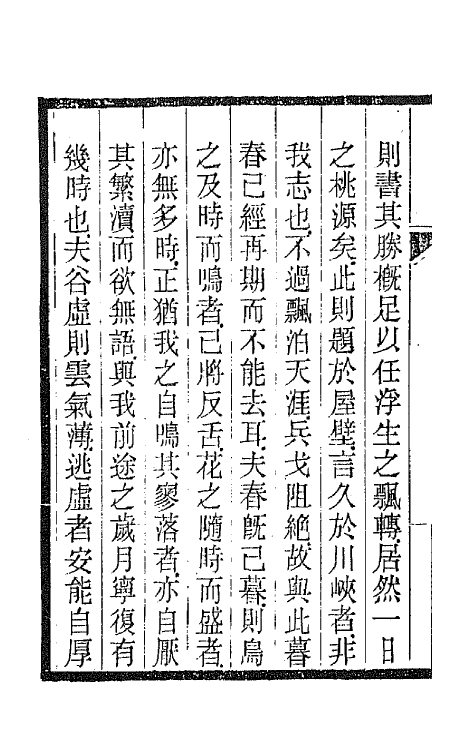 則書其勝槪足以任浮生之飄轉居然一日
之桃源矣此則題於屋壁言久於川峽者非
我志也不過飄泊天涯兵戈阻絶故與此暮
春已經再期而不能去耳夫春旣已暮則鳥
之及時而鳴者已將反舌花之隨時而盛者
亦無多時正猶我之自鳴其寥落者亦自厭
其繁瀆而欲無語與我前途之歲月寧復有
幾時也夫谷虛則雲氣薄逃虛者安能自厚